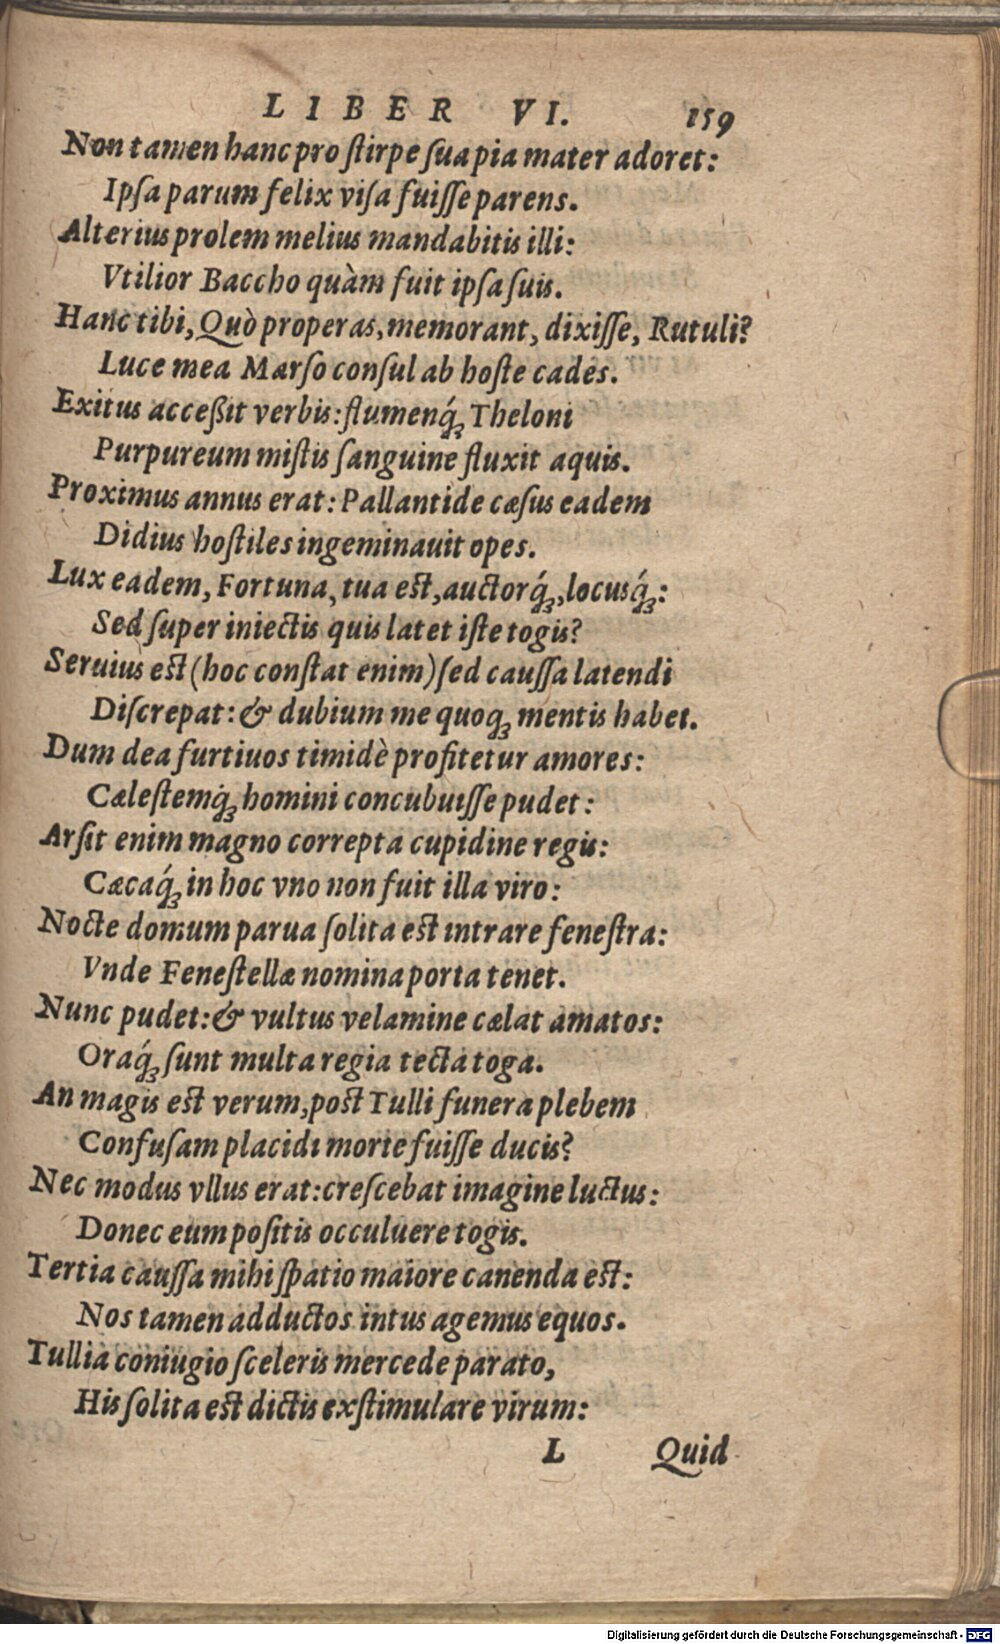 LIBER VI. 159
Non tamen hanc pro ſtirpe ſua pia mater adoret:
Ipſa parum felix viſa fuiſſe parens.
Alterius prolem melius mandabitis illi:
Vtilior Baccho quàm fuit ipſa ſuis.
Hanc tibi, Quò properas, memorant, dixiſſe, Rutuli?
Luce mea Marſo conſul ab hoſte cades.
Exitus acceßit verbis: flumenq́ꝫ Theloni
Purpureum miſtis ſanguine fluxit aquis.
Proximus annus erat: Pallantide cæſus eadem
Didius hoſtiles ingeminauit opes.
Lux eadem, Fortuna, tua eſt, auctorq́ꝫ, locusq́ꝫ:
Sed ſuper iniectis quis latet iſte togis?
Seruius eſt (hoc conſtat enim) ſed cauſſa latendi
Diſcrepat: & dubium me quoqꝫ mentis habet.
Dum dea furtiuos timidè profitetur amores:
Cæleſtemq́ꝫ homini concubuiſſe pudet:
Arſit enim magno correpta cupidine regis:
Cæcaq́ꝫ in hoc vno non fuit illa viro:
Nocte domum parua ſolita eſt intrare feneſtra:
Vnde Feneſtellæ nomina porta tenet.
Nunc pudet: & vultus velamine cælat amatos:
Oraq́ꝫ ſunt multa regia tecta toga.
An magis eſt verum, poſt Tulli funera plebem
Confuſam placidi morte fuiſſe ducis?
Nec modus vllus erat: creſcebat imagine luctus:
Donec eum poſitis occuluere togis.
Tertia cauſſa mihi ſpatio maiore canenda eſt:
Nos tamen adductos intus agemus equos.
Tullia coniugio ſceleris mercede parato,
His ſolita eſt dictis exſtimulare virum:
L Quid
Digitalisierung gefördert durch die Deutsche Forschungsgemeinschaft - DFG